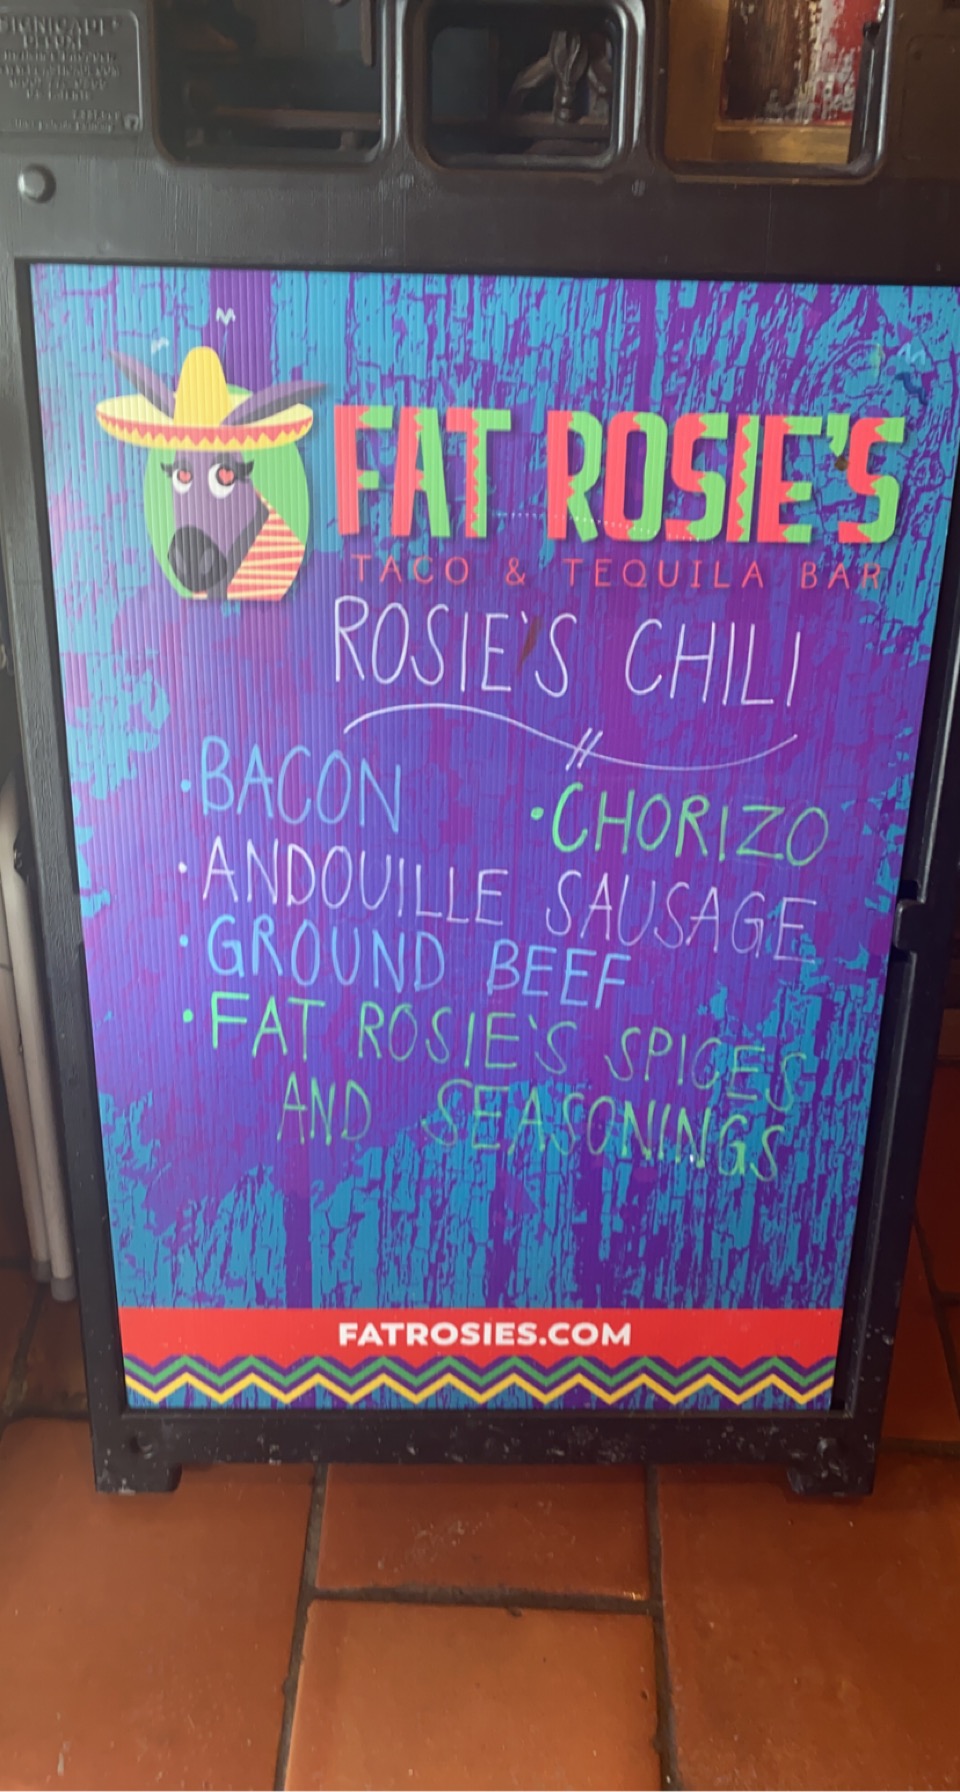 SIGNICADE
DELUXE
FAT ROSIE'S
TACO & TEQUILA BAR
ROSIE'S CHILI
• BACON
• CHORIZO
• ANDOUILLE SAUSAGE
• GROUND BEEF
• FAT ROSIE'S SPICES
AND SEASONINGS
FATROSIES.COM